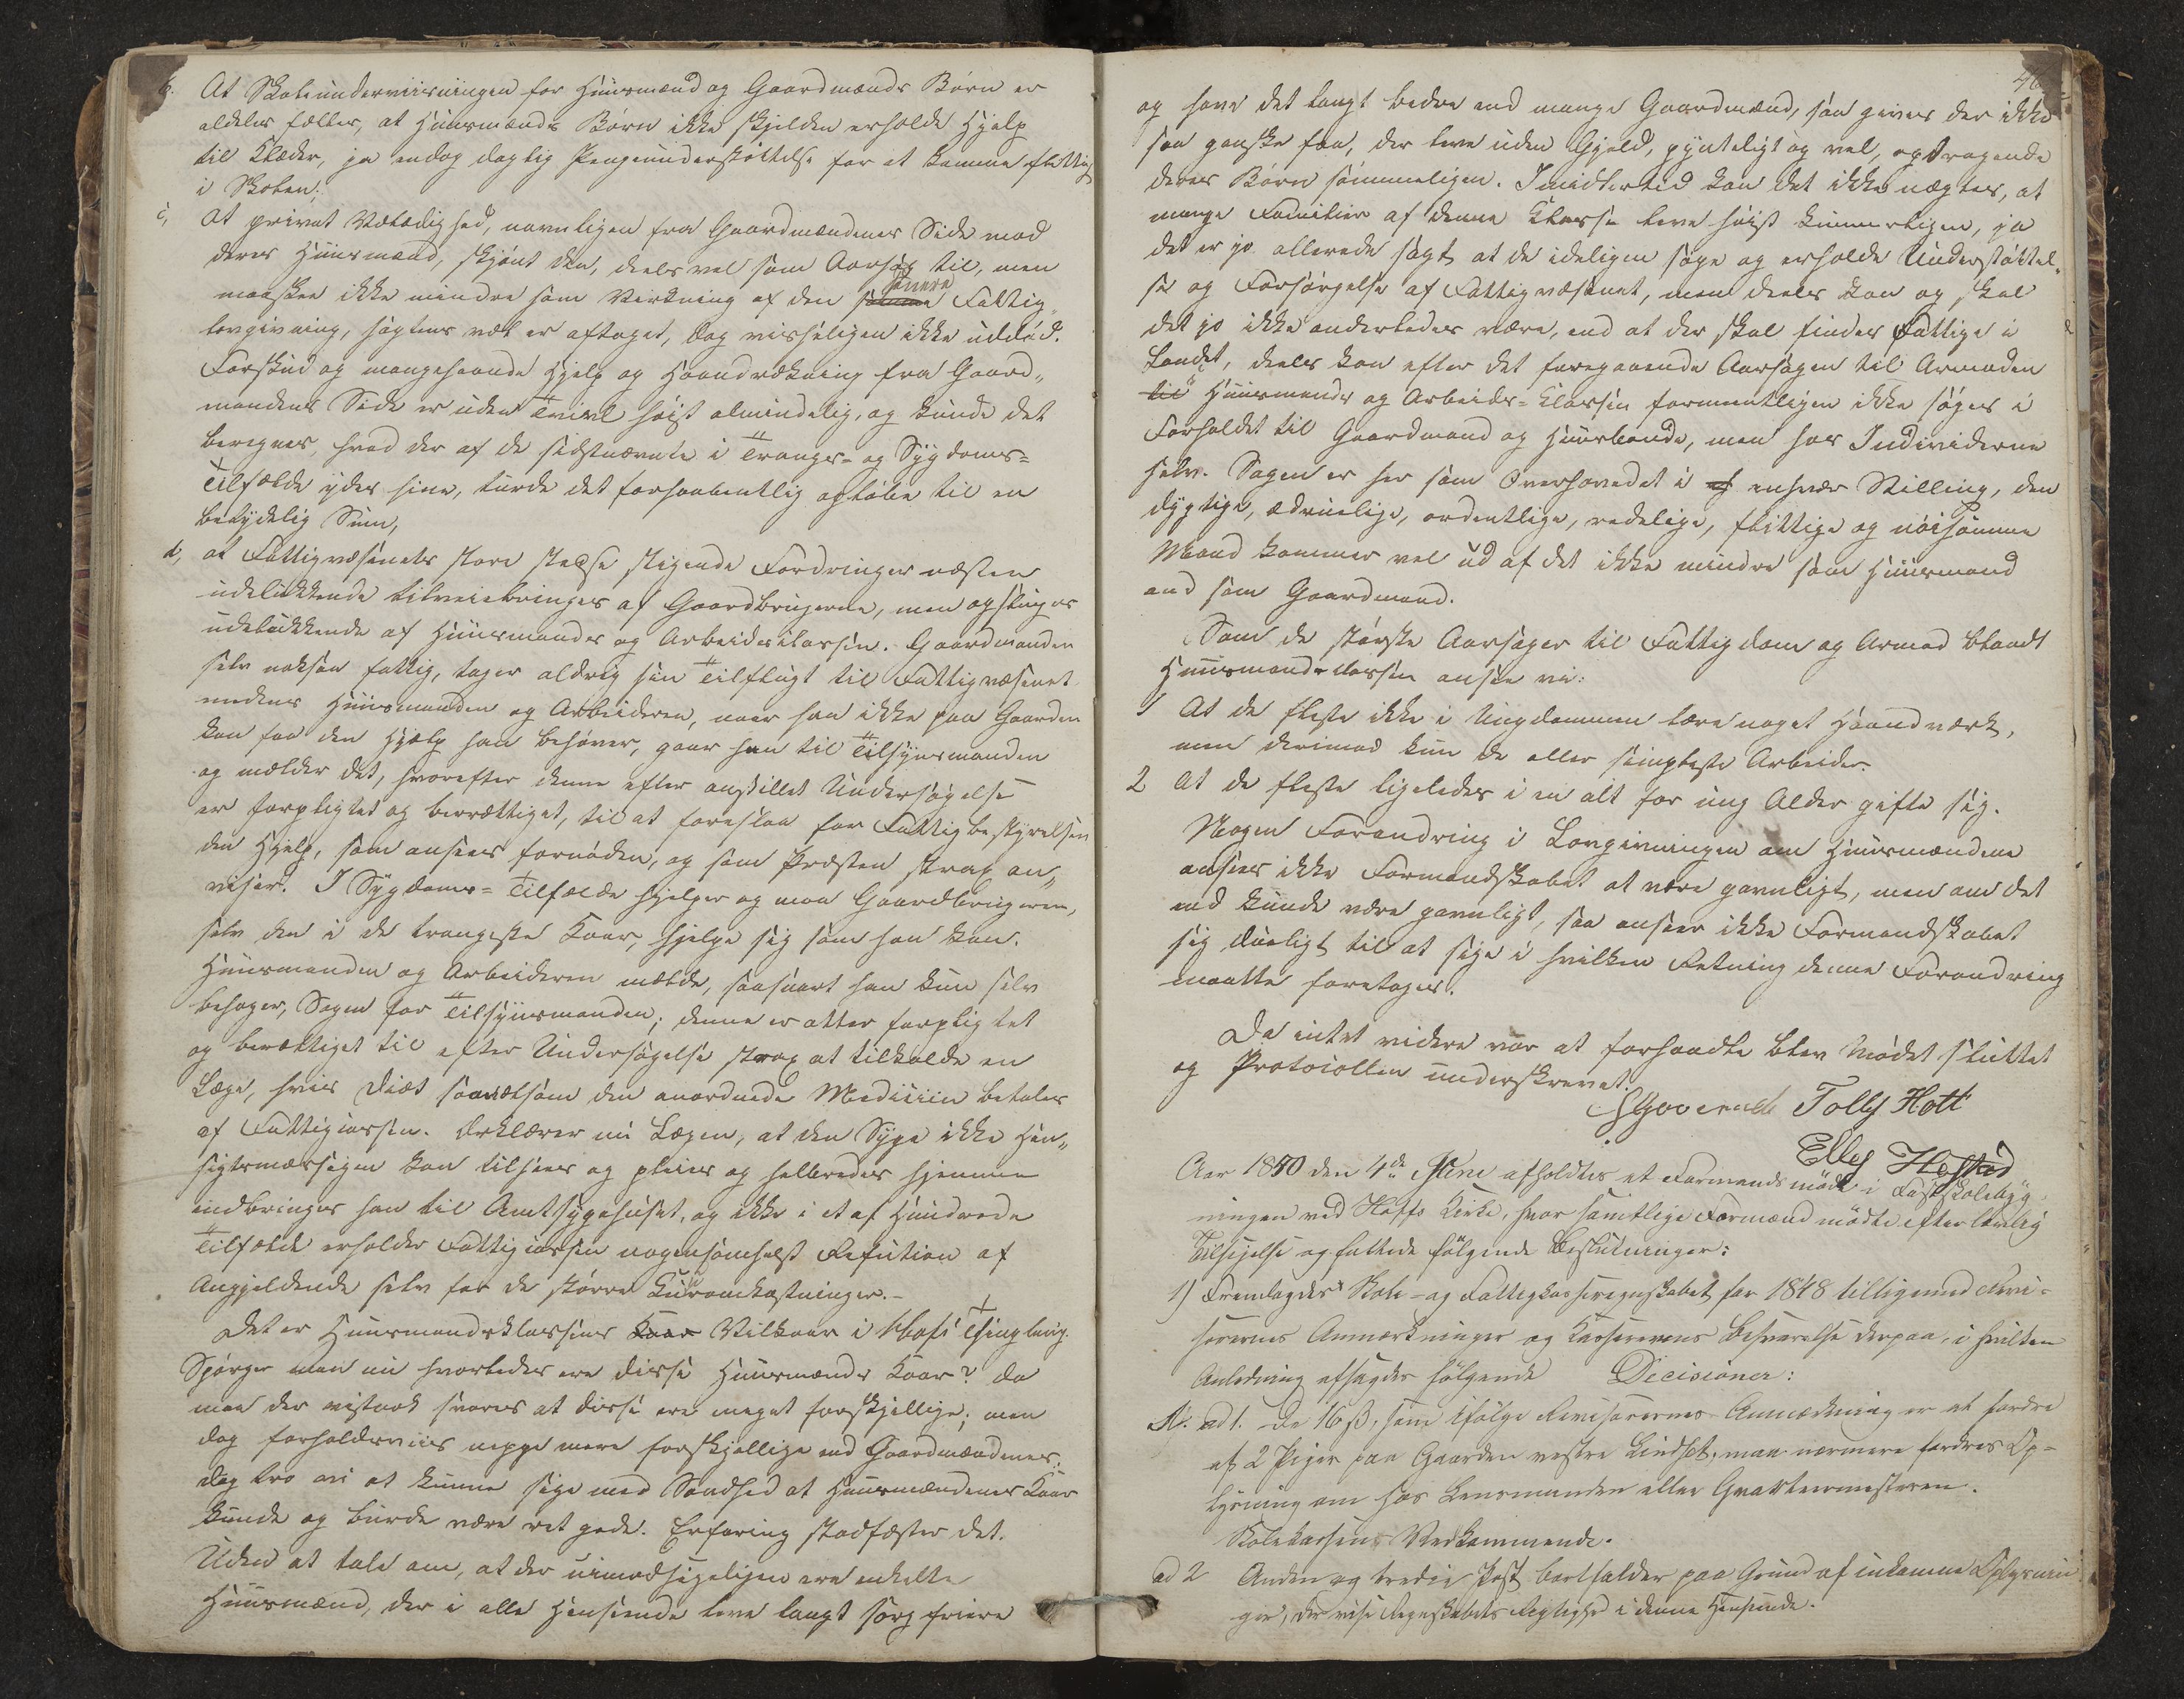 b. At Skoleunderviisningen for Huusmænd og Gaardmænds Børn er
aldeles fælles, at Huusmænds Børn ikke skjelden erholde Hjelp
til Klæder, ja endog daglig Pengeunderstøttelse for at komme flittig
i Skolen;
c, At privat Veldædighed, navnligen fra Gaardmændenes Side mod
deres Huusmænd, skjønt den, deels vel som Aarsag til, men
maaskee ikke mindre som Virkning af den senere Fattig„
lovgivning, sagtens vel er aftaget, dog visseligen ikke uddød.
Forskud og mangehaande Hjelp og Haandrækning fra Gaard„
mandens Side er uden Tvivl høist almindelig, og kunde det
beregnes, hvad der af de sidstnævnte i Trangs- og Sygdoms-
Tilfælde ydes hine, turde det forhaabentlig opløbe til en
betydelig Sum,
d, at Fattigvæsenets store stedse stigende Fordringer næsten
udelukkende tilveiebringes af Gaardbrugerne, men opsluges
udelukkende af Huusmands og Arbeidsclassen. Gaardmanden
selv noksaa fattig, tager aldrig sin Tilflugt til Fattigvæsenet
medens Huusmanden og Arbeideren, naar han ikke paa Gaarden
kan faa den Hjelp han behøver, gaar han til Tilsynsmanden
og melder det, hvorefter denne efter anstillet Undersøgelse
er forpligtet og berettiget, til at foreslaa for Fattigbestyrelsen
den Hjelp, som ansees fornøden, og som Præsten strax an„
viser. I Sygdoms-Tilfælde hjelper og maa Gaardbrugeren,
selv den i de trangeste Kaar, hjelpe sig som han kan.
Huusmanden og Arbeideren melde, saasnart han kun selv
behager, Sagen for Tilsynsmanden; denne er atter forpligtet
og berettiget til efter Undersøgelse strax at tilkalde en
Læge, hvis Diæt saavelsom den anordnede Medicin betales
af Fattigcassen. Erklærer nu Lægen, at den Syge ikke Hen„
sigtsmæssigen kan tilsees og pleies og helbredes hjemme
indbringes han til Amtssygehuset, og ikke i et af Hundrede
Tilfælde erholder Fattigcassen nogensomhelst Refusion af
Angjeldende selv for de større Kuromkostninger.-
Det er Huusmandsklassens Kaar Vilkaar i Hofs Thinglaug.
Spørger man nu hvorledes ere disse Huusmænds Kaar? da
maa der vistnok svares at disse ere meget forskjellige; men
dog forholdsviis neppe mere forskjellige end Gaardmændenes;
dog tro vi at kunne sige med Sandhed at Huusmændenes Kaar
kunde og burde være ret gode. Erfaring stadfæster det.
Uden at tale om, at der uimodsigeligen ere enkelte
Huusmænd, der i alle Henseende leve langt sorgfriere
46
og have det langt bedre end mange Gaardmænd, saa gives der ikke
saa ganske faa, der leve uden Gjeld, pynteligt og vel, opdragende
deres Børn sømmeligen. Imidlertid kan det ikke nægtes, at
mange Familier af denne Klasse leve høist kummerligen, ja
det er jo allerede sagt at de ideligen søge og erholde Understøttel„
se og Forsørgelse af Fattigvæsenet, men deels kan og skal
det jo ikke anderledes være, end at der skal findes Fattige i
Landet, deels kan efter det foregaaende Aarsagen til Armoden
til Huusmands og Arbeids-Classen formeentligen ikke søges i
Forholdet til Gaardmand og Huusbonde, men hos Individerne
selv. Sagen er her som Overhovedet i enhver Stilling, den
dygtige, ædruelige, ordentlige, redelige, flittige og nøisomme
Mand kommer vel ud af det ikke mindre som Huusmand
end som Gaardmand.
Som de største Aarsager til Fattigdom og Armod blandt
Huusmandsclassen ansee vi:
1 At de fleste ikke i Ungdommen lære noget Haandværk,
men derimod kun de aller simpleste Arbeider.
2 At de fleste ligeledes i en alt for ung Alder gifte sig.
Nogen Forandring i Lovgivningen om Huusmændene
ansees ikke Formandskabet at være gavnligt, men om det
end kunde være gavnligt, saa anseer ikke Formandskabet
sig dueligt til at sige i hvilken Retning denne Forandring
maatte foretages.
Da intet videre var at forhandle blev Mødet sluttet
og Protocollen underskrevet.
Tolly Hott
Elly Hofstad
Aar 1850 den 4de Juni afholdtes et Formandsmøde i Fastskolebyg
ningen ved Hoffs Kirke, hvor samtlige Formænd mødte efter lovlig
Tilsigelse og fattede følgende Beslutninger:
1) Fremlagdes Skole- og Fattigkasseregnskabet for 1848 tilligemed Revi-
sorernes Anmærkninger og Kassererens Besvarelse derpaa, i hvilken
Anledning afsagdes følgende Decisioner:
A. ad 1. De 16 ß, som ifølge Revisorernes Anmærkning er at fordre
af 2 Piger paa Gaarden vestre Lindset, maa nærmere fordres Op-
lysning om hos Lensmanden eller Qvarteermesteren.
Skolekassens Vedkommende.
ad 2 Anden og tredie Post bortfalder paa Grund af indkomne Oplysnin
ger, der vise Regnskabets Rigtighed i denne Henseende.